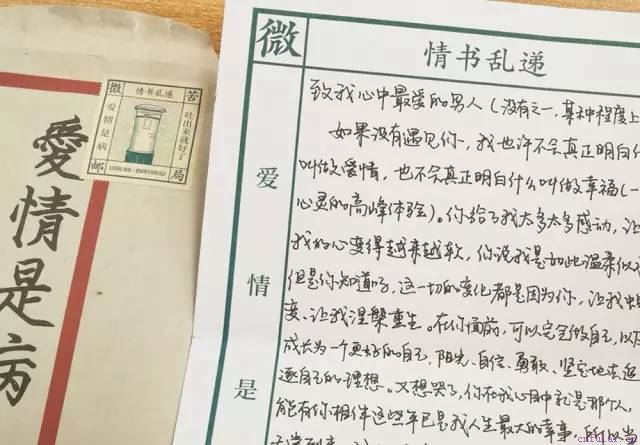 愛情是病
微
情书乱递
苦
爱情是病
吐出来就好了
邮
局
微
情书乱递
爱情是
致我心中最爱的男人（没有之一，某种程度上
如果没有遇见你，我也许不会真正明白什
叫做爱情，也不会真正明白什么叫做幸福（一
心灵的高峰体验）。你给了我太多太多感动，让
我的心变得越来越软，你说我是如此温柔似
但是你知道吗，这一切的变化都是因为你，让我
变、让我涅槃重生。在你面前，可以完全做自己，以
成长为一个更好的自己，阳光、自信、勇敢、坚定地去追
逐自己的理想。又想哭了，你在我心目中就是那个人，
能有你相伴这些年已是我人生最大的幸事，所以